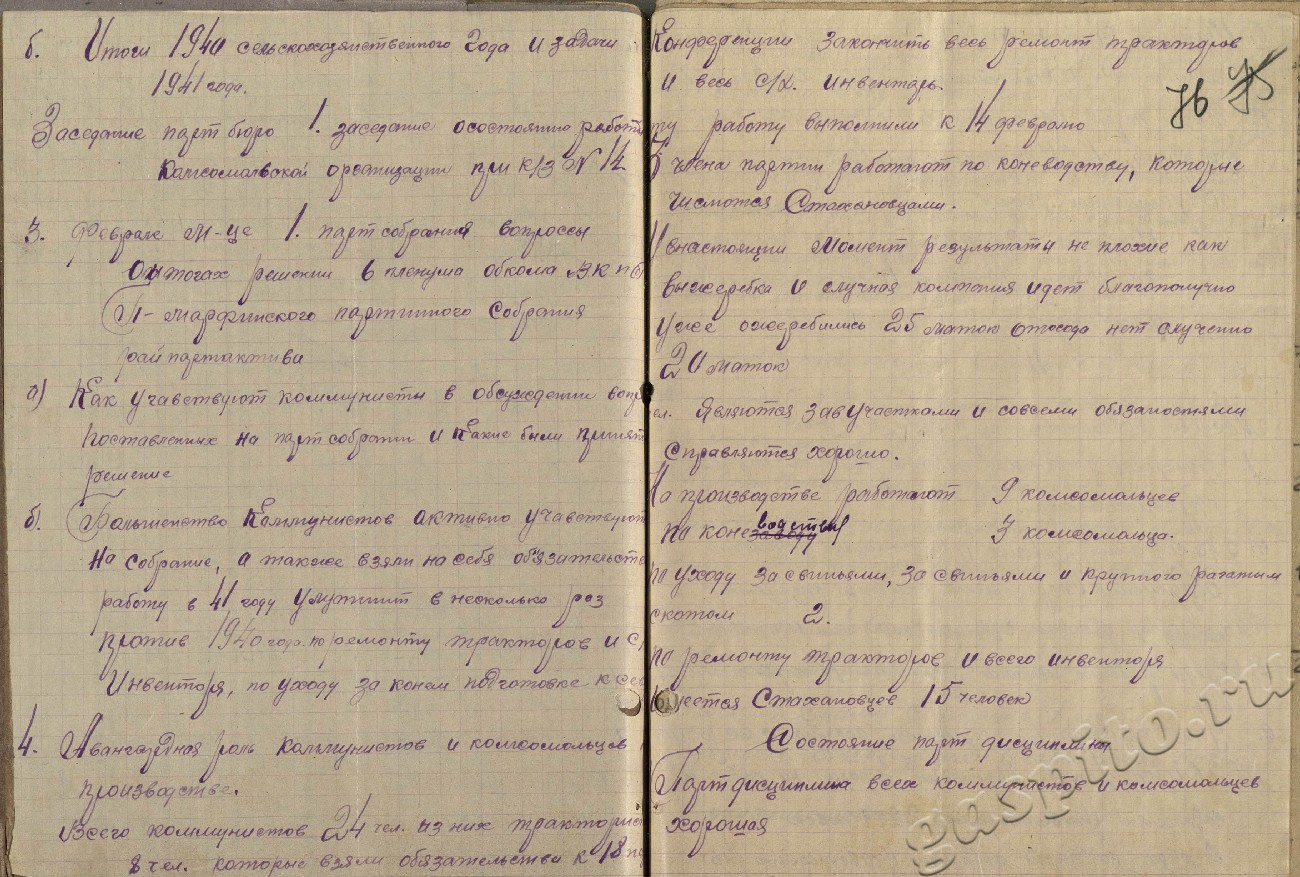 б. Итоги 1940 сельскохозяйственного года и задачи
1941 года.
Заседание парт бюро 1. заседание осостоянию работы
Комсомольской организации при к/з № 14
3. Феврале м-це 1. парт собрания вопроссы
Онтогах решении 6 пленума обкома В.К п б
П-марфинского партииного собрания
рай партактива
а) Как учавствуют коммунисты в обсуждении вопр
поставленных на парт собрании и какие были принят
решение
б). Большенство Каммунистов активно учавствуют
на собрание, а также взяли на себя обязательств
работу в 41 году умножит в несколько раз
против 1940 годо. по ремонту тракторов и с/
Инвенторя, по уходу за конем подготовке к сев
4. Авангардная роль каммунистов и комсомольцов
производстве.
Всего коммунистов 24 чел. из них тракторис
8 чел. которые взяли обязательства к 18 па
Конференции закончить весь ремонт тракторов
и весь с/х. инвентарь.
ту работу выполнили к 14 февралю
члена партии работают по коневодству, которые
числются Стахановцами.
внастоящии момент результаты не плохие как
выжеребка и случная компания идет благополучно
уже ожеребились 25 маток отхода нет слученно
20 маток
ел. Являются завучастками и совсеми обязаностями
справляются хорошо.
на производстве работают 9 комсомольцев
по коне заводу водствы 3 комсомольца.
по уходу за свиньями, за свиньями и крупного рагатым
скотом 2.
по ремонту тракторов и всего инвенторя
имеется Стахановцев 15 человек
Состояние парт дисциплины
Парт дисциплина всех коммунистов и комсомольцев
хорошая
76 75
gaspito.ru